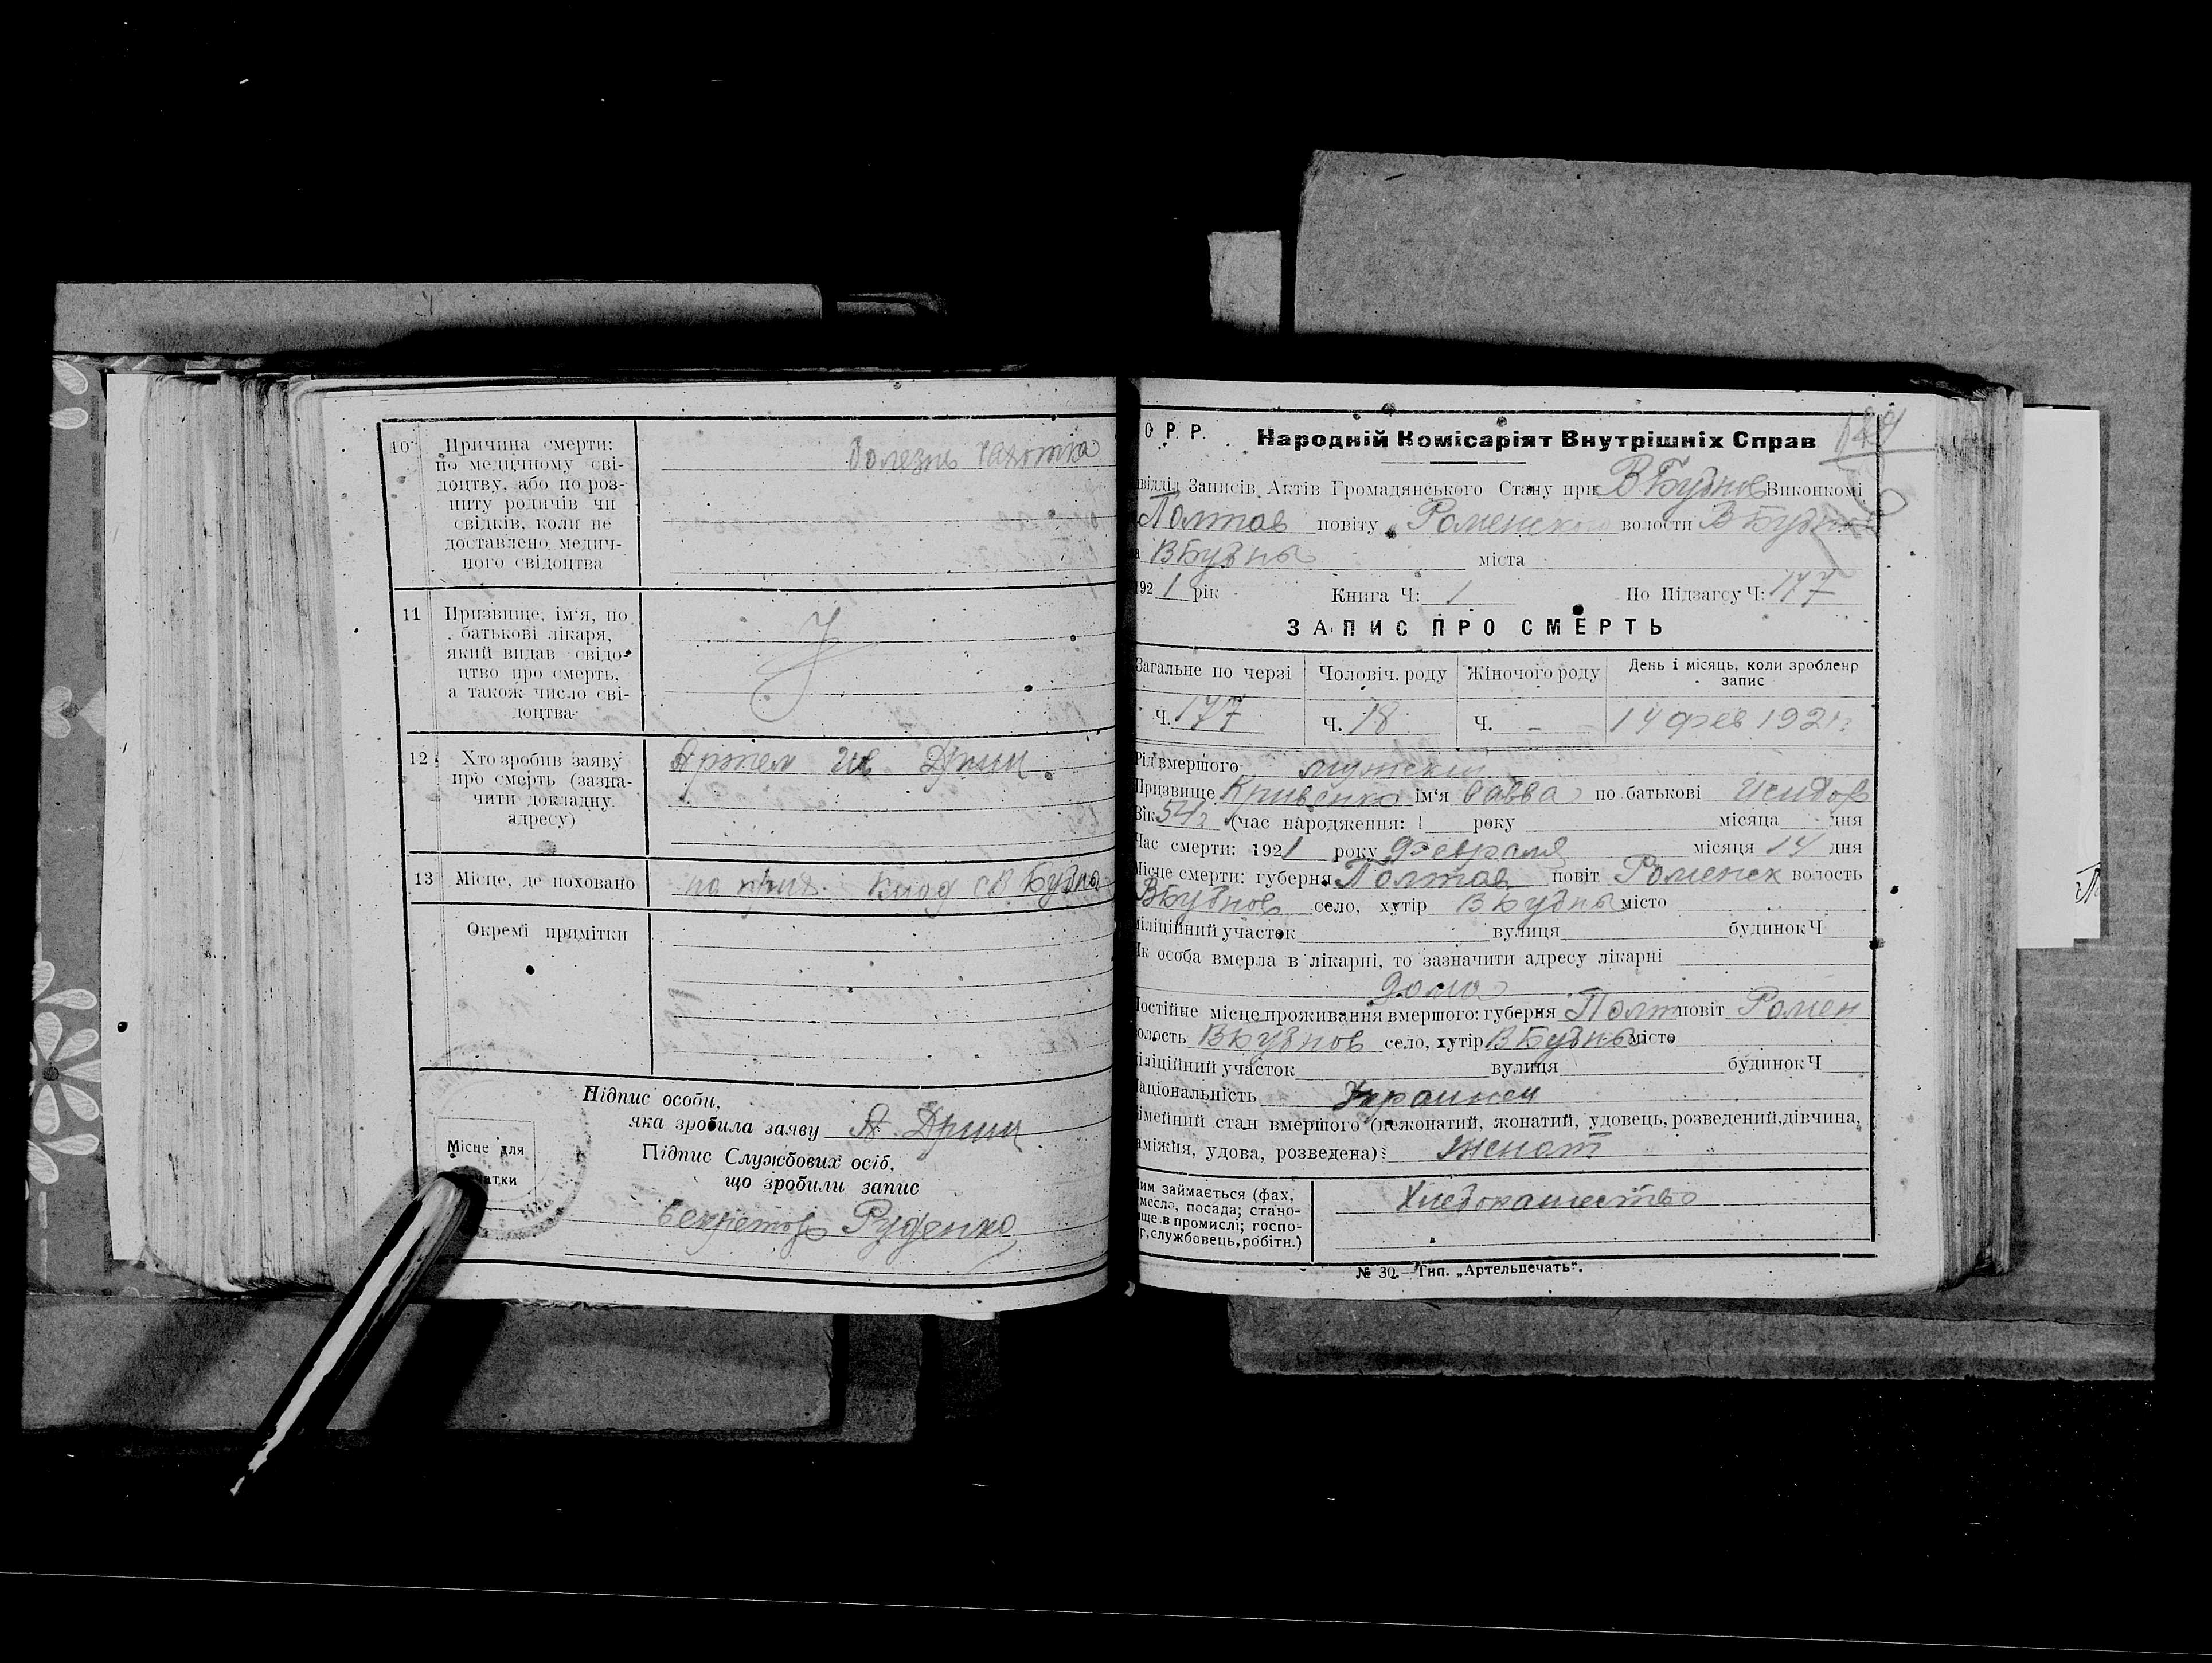 10
Причина смерти:
по медичному сві-
доцтву, або по роз-
питу родичів чи
свідків, коли не
доставлено медич-
ного свідоцтва
болезнь чахотка
11
Призвище, ім'я, по
батькові лікаря,
який видав свідо-
цтво про смерть,
а також число сві-
доцтва
12
Хто зробив заяву
про смерть (зазна-
чити докладну
адресу)
Артем Ив Дрич
13
Місце, де поховано
на прих. клад св Будна
Окремі примітки
Підпис особи,
яка зробила заяву А. Дрич
Підпис Службових осіб,
що зробили запис
Місце для
Секретарь Руденко
О Р. Р.
Народній Комісаріят Внутрішніх Справ
відділ Записів Актів Громадянського Стану при ВБубнов Виконкомі
Полтав повіту Роменского волости ВБубнов
ВБубны міста
1921 рік Книга Ч: 1 По Підзагсу Ч: 177
ЗАПИС ПРО СМЕРТЬ
Загальне по черзі
Чоловіч. роду
Жіночого роду
День і місяць, коли зроблено
запис
Ч. 177
Ч. 18
Ч. -
14 фев 1921г
Рід вмершого мужский
Призвище Кривенко ім'я Савва по батькові Исидор
Вік 54г (час народження: 1 року місяца дня
Час смерти: 1921 року Февраля місяця 14 дня
Місце смерти: губерня Полтав повіт Роменск волость
ВБубнов село, хутір ВБубны місто
міліційний участок вулиця будинок Ч
Як особа вмерла в лікарні, то зазначити адресу лікарні
дома
Постійне місце проживання вмершого: губерня Полт повіт Ромен
волость ВБубнов село, хутір ВБубны місто
міліційний участок вулиця будинок Ч
Національність Украинец
імейний стан вмершого (нежонатий, жонатий, удовець, розведений, дівчина,
аміжня, удова, розведена): женат
Чим займається (фах,
ремесло, посада; стано-
вище в промислі; госпо-
г, службовець, робітн.)
Хлебопашество
№ 30.—Тип. „Артельпечать“.